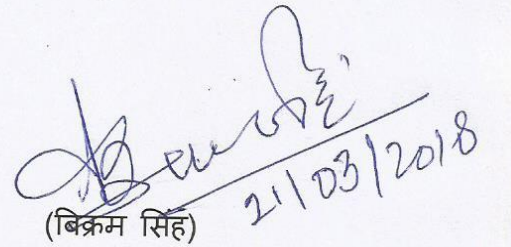 21/03/2018
(बिक्रम सिंह)